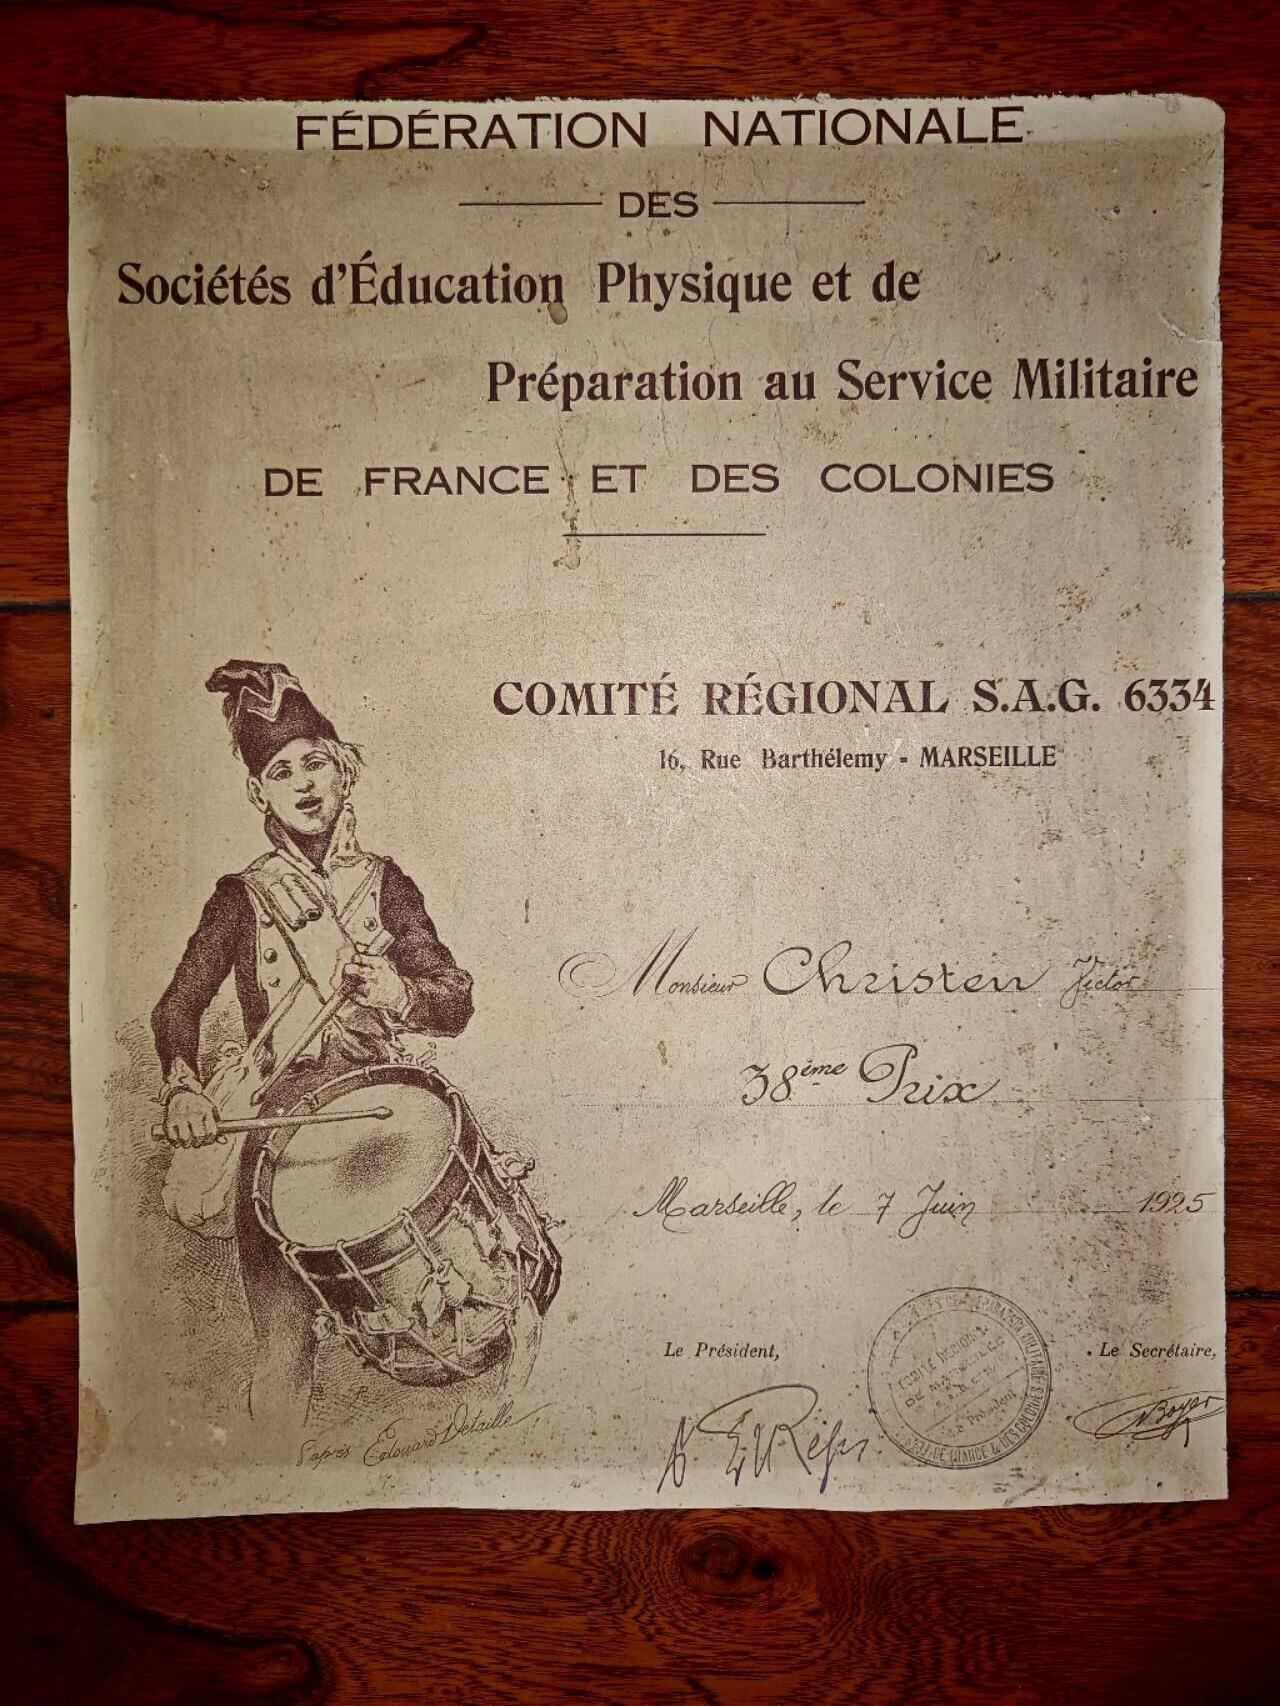 FÉDÉRATION NATIONALE
DES
Sociétés d'Éducation Physique et de
Préparation au Service Militaire
DE FRANCE ET DES COLONIES
COMITÉ RÉGIONAL S.A.G. 6334
16, Rue Barthélemy - MARSEILLE
Monsieur Christen Victor
38ème Prix
Marseille, le 7 Juin 1925
Le Président,
Le Secrétaire,
Boyer
d'après Édouard Detaille
COMITÉ RÉGIONAL
DE MARSEILLE
Le Président
MILITAIRE DE FRANCE & DES COLONIES